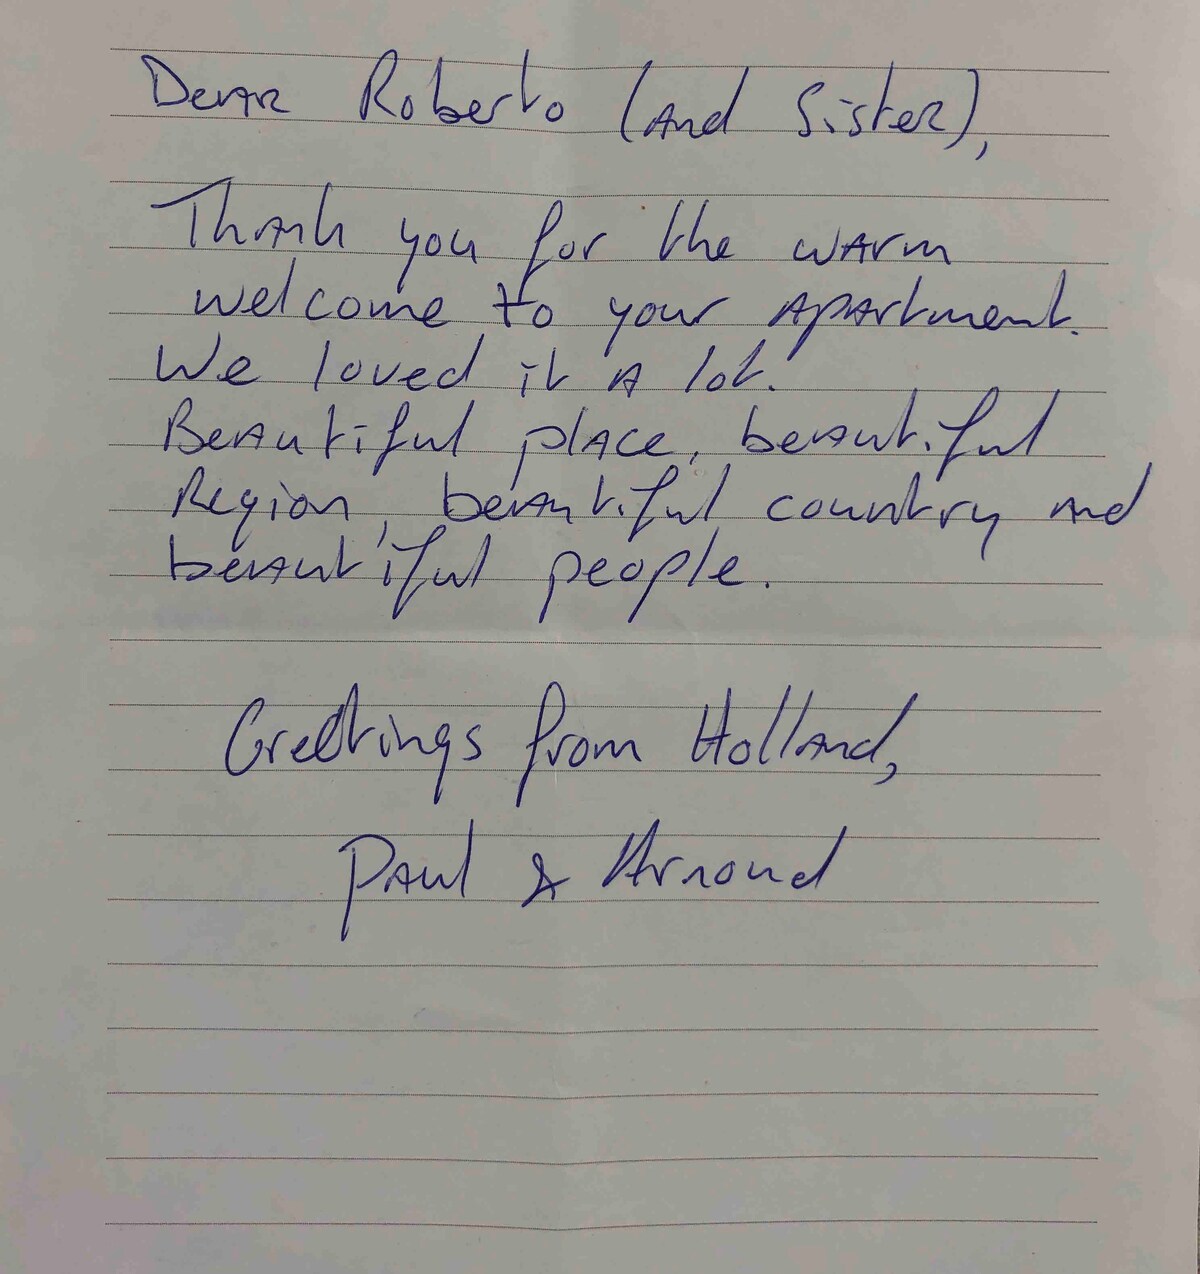 Dear Roberto (and Sister),
Thank you for the warm
welcome to your apartment.
We loved it a lot.
Beautiful place, beautiful
Region, beautiful country and
beautiful people.
Greetings from Holland,
Paul & Arnoud